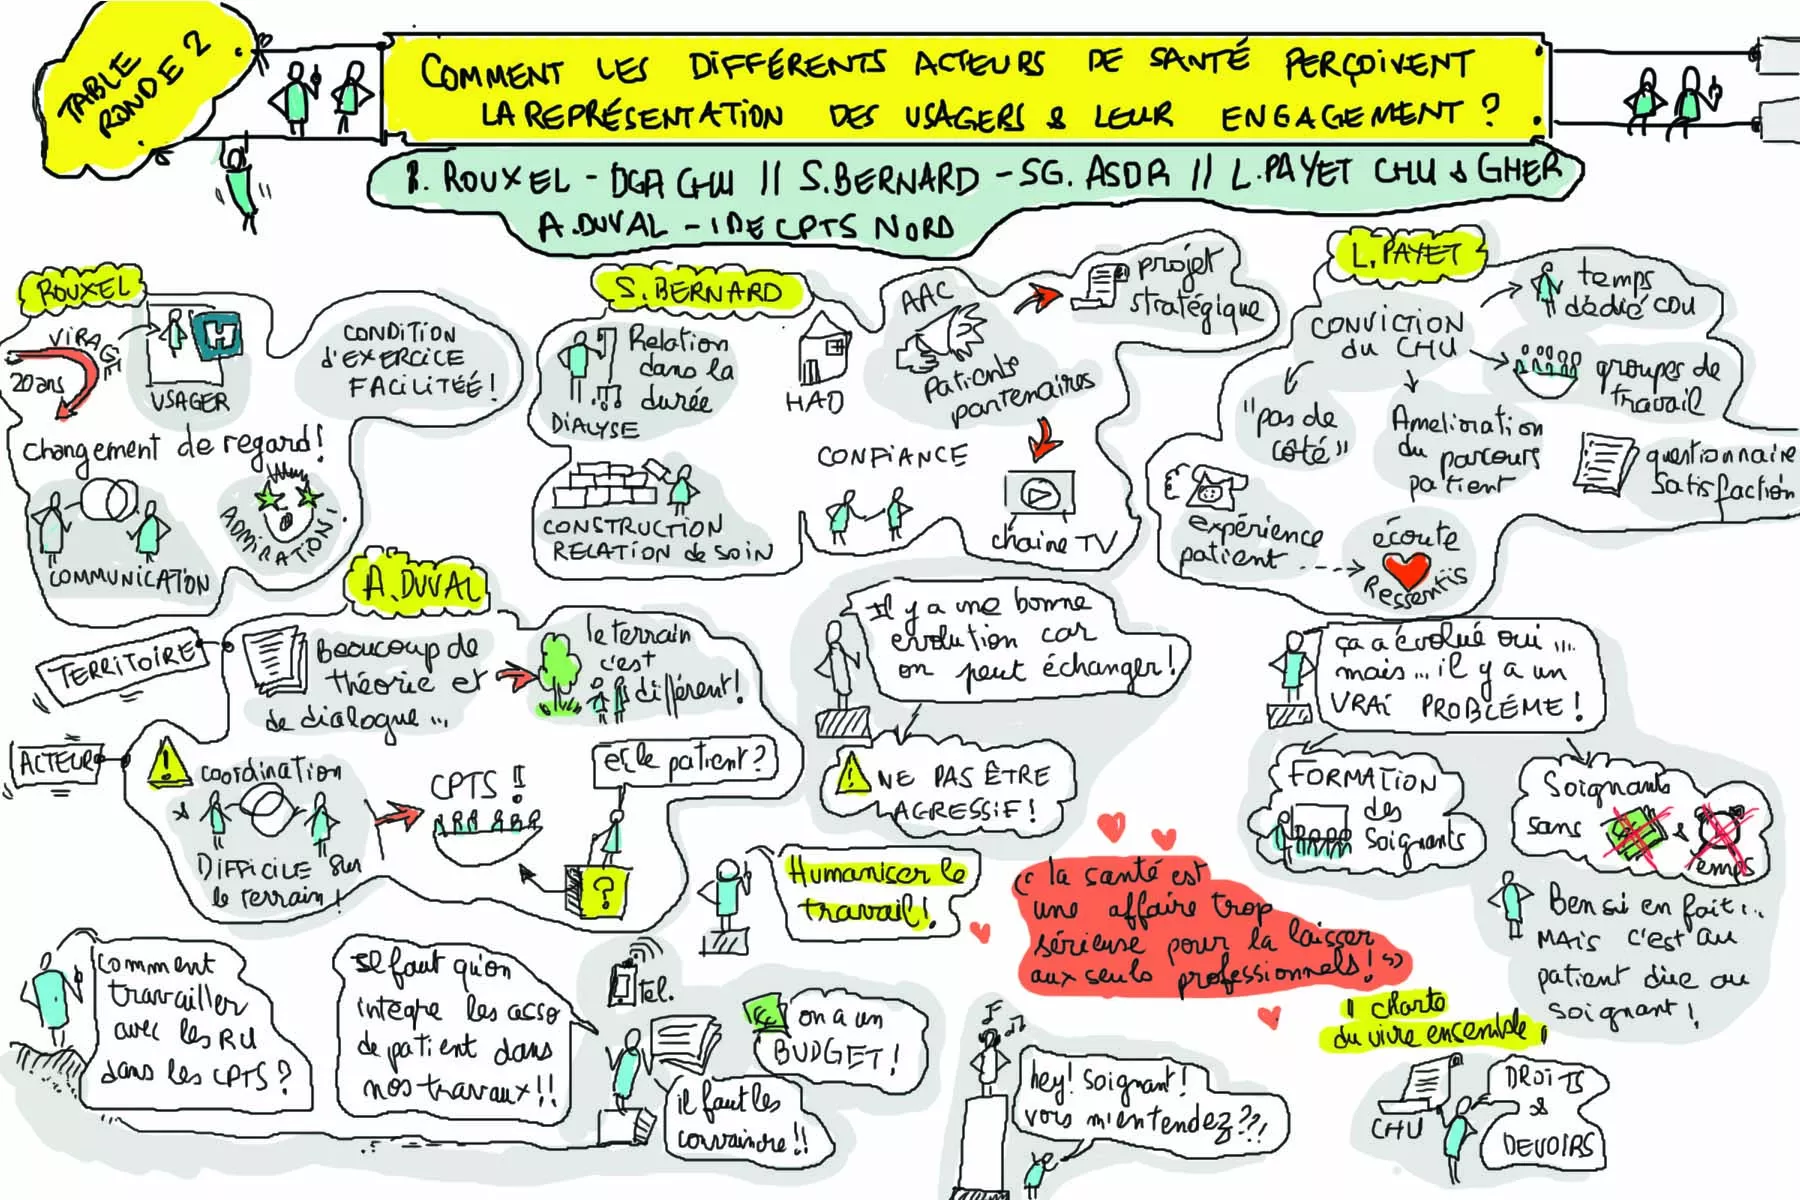 TABLE
RONDE 2
COMMENT LES DIFFÉRENTS ACTEURS DE SANTÉ PERÇOIVENT
LA REPRÉSENTATION DES USAGERS & LEUR ENGAGEMENT ?
ROUXEL - DGA CHU // S.BERNARD - SG. ASDR // L.PAYET CHU & GHER
A.DUVAL - IDE CPTS NORD
ROUXEL
VIRAGE
20ans
H
USAGER
CONDITION
d'EXERCICE
FACILITÉE !
changement de regard !
COMMUNICATION
ADMIRATION !
S. BERNARD
Relation
dans la
durée
DIALYSE
HAD
AAC
Patients
partenaires
projet
stratégique
CONSTRUCTION
RELATION de SOIN
CONFIANCE
chaine TV
L. PAYET
CONVICTION
DU CHU
temps
dédié CDU
groupes de
travail
"pas de
côté"
Amelioration
du parcours
patient
questionnaire
satisfaction
expérience
patient
écoute
Ressentis
A. DUVAL
TERRITOIRE
ACTEUR
Beaucoup de
théorie et
de dialogue...
le terrain
c'est
différent !
!
coordination
DIFFICILE sur
le terrain !
CPTS !!
et le patient ?
?
Il y a une bonne
évolution car
on peut échanger !
! NE PAS ÊTRE
AGRESSIF !
ça a évolué oui ...
mais... il y a un
VRAI PROBLÈME !
FORMATION
des
soignants
Soignants
sans
&
temps
Humaniser le
travail !
"la santé est
une affaire trop
sérieuse pour la laisser
aux seuls professionnels !"
Ben si en fait !..
MAIS C'est au
patient due au
soignant !
Comment
travailler
avec les RU
dans les CPTS ?
Il faut qu'on
intègre les asso
de patient dans
nos travaux !!
tel.
on a un
BUDGET !
il faut les
convaincre !!
hey ! Soignant !
vous m'entendez ??!
" charte
du vivre ensemble "
CHU
DROITS
&
DEVOIRS